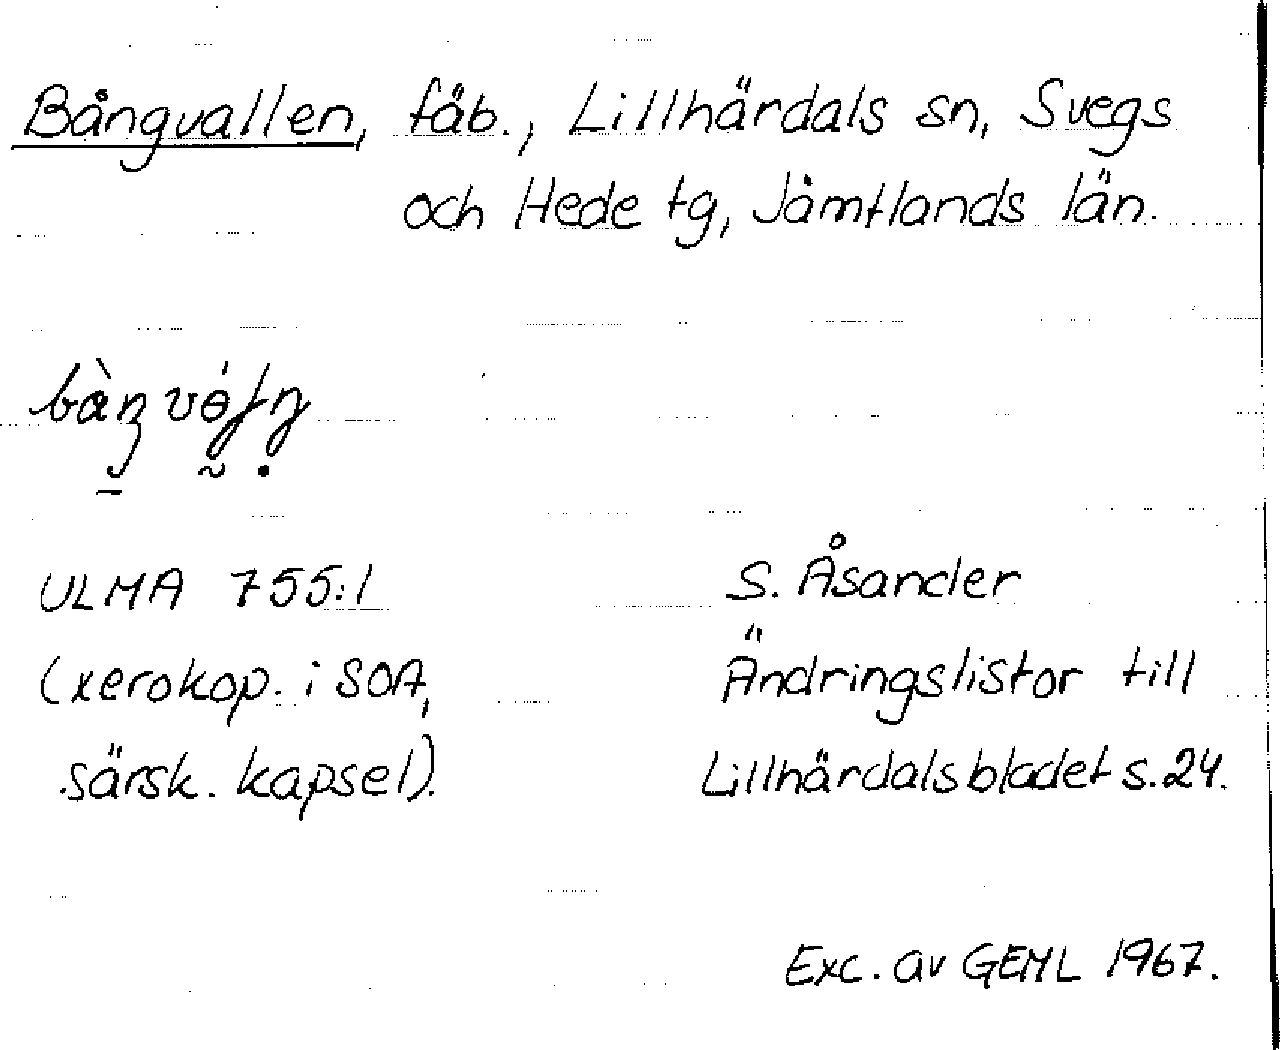 Bångvallen, fäb., Lillhärdals sn, Svegs
och Hede tg, Jämtlands län.
ULMA 755:1
(xerokop. i SOA,
särsk. kapsel).
S. Åsander
Ändringslistor till
Lillhärdalsbladet s.24.
Exc. av GEML 1967.